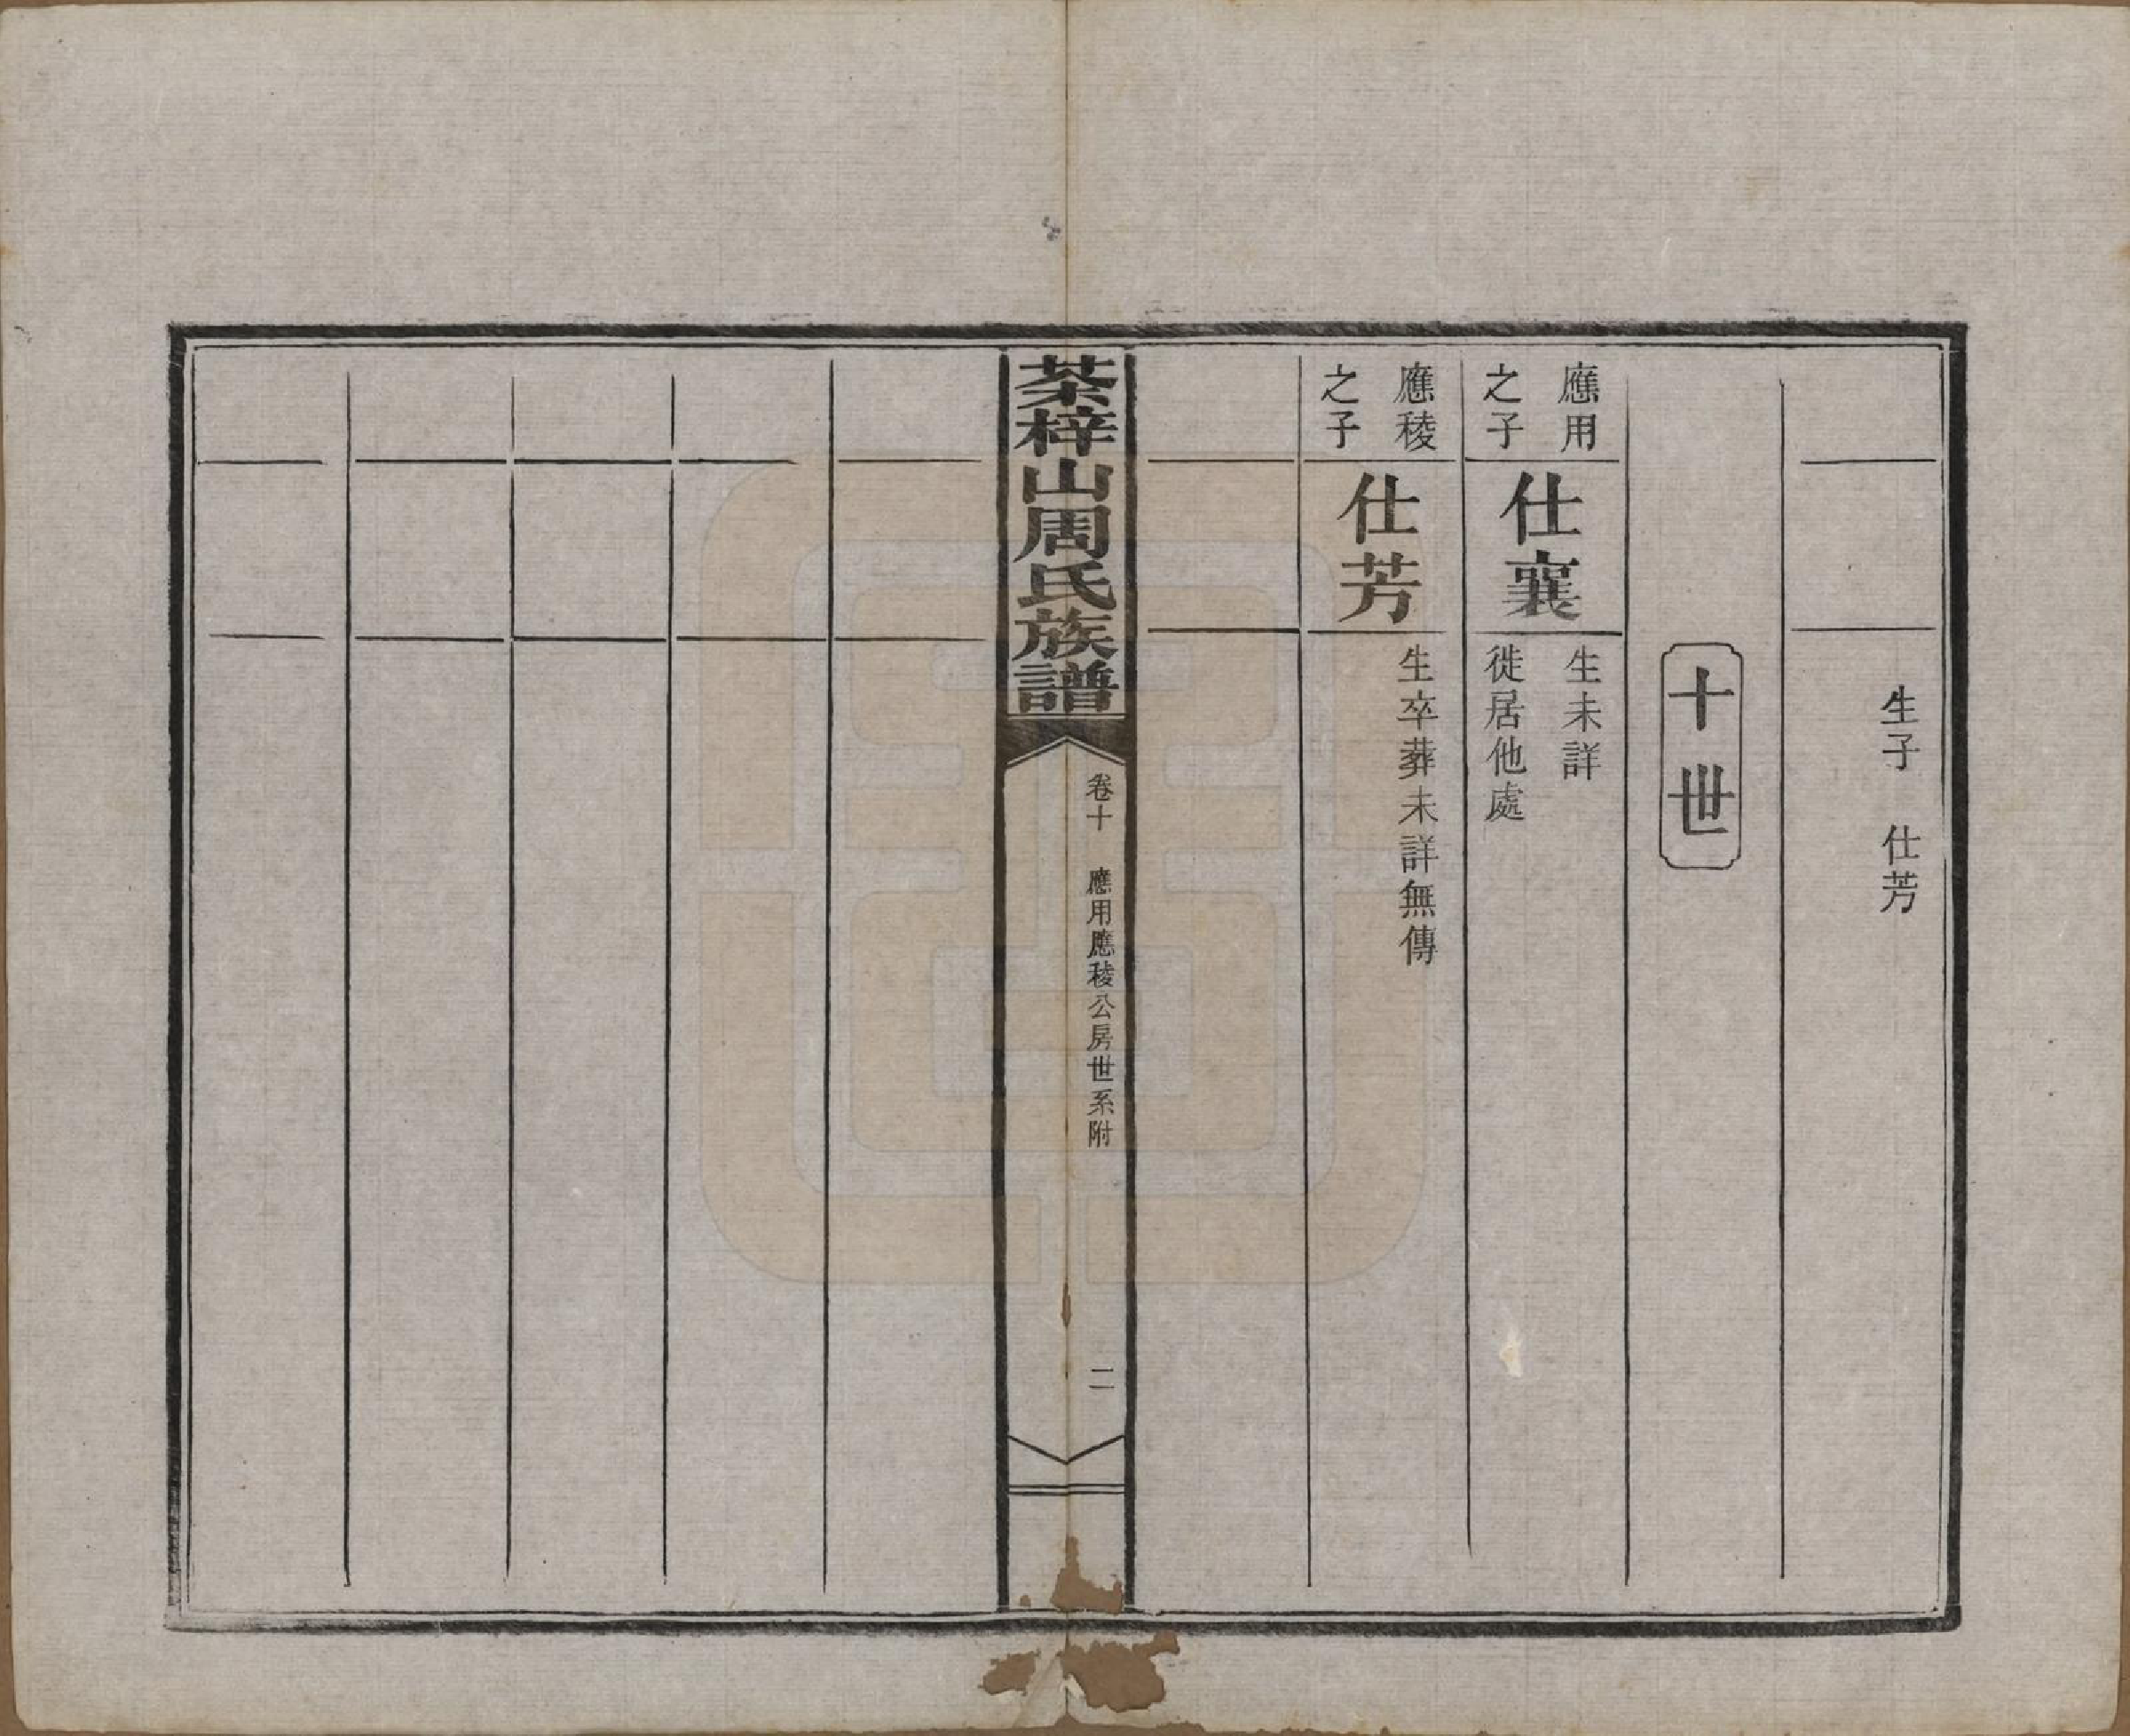 生子　仕芳
十世
應用
之子
仕襄
生未詳
徙居他處
應稜
之子
仕芳
生卒葬未詳無傳
茶梓山周氏族譜
卷十　應用應稜公房世系附
二